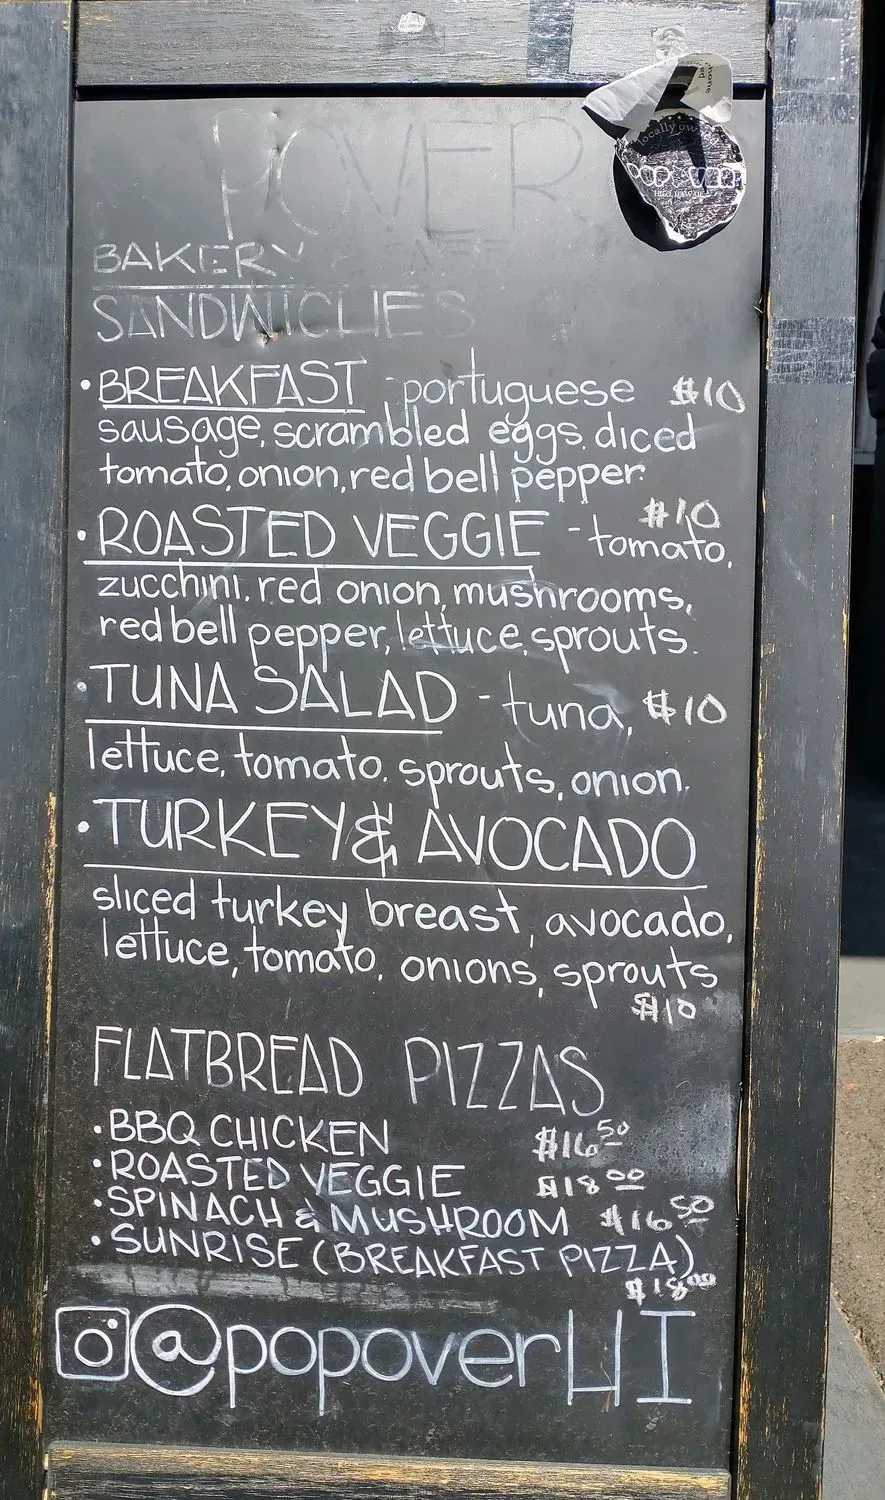 POVER
BAKERY
SANDWICHES
• BREAKFAST - portuguese $10
sausage, scrambled eggs, diced
tomato, onion, red bell pepper.
$10
• ROASTED VEGGIE - tomato,
zucchini, red onion, mushrooms,
red bell pepper, lettuce, sprouts.
• TUNA SALAD - tuna, $10
lettuce, tomato, sprouts, onion.
• TURKEY & AVOCADO
sliced turkey breast, avocado,
lettuce, tomato, onions, sprouts
$10
FLATBREAD PIZZAS
• BBQ CHICKEN $16 50
• ROASTED VEGGIE $18 00
• SPINACH & MUSHROOM $16 50
• SUNRISE (BREAKFAST PIZZA)
$18 00
@popoverHI
locally ow